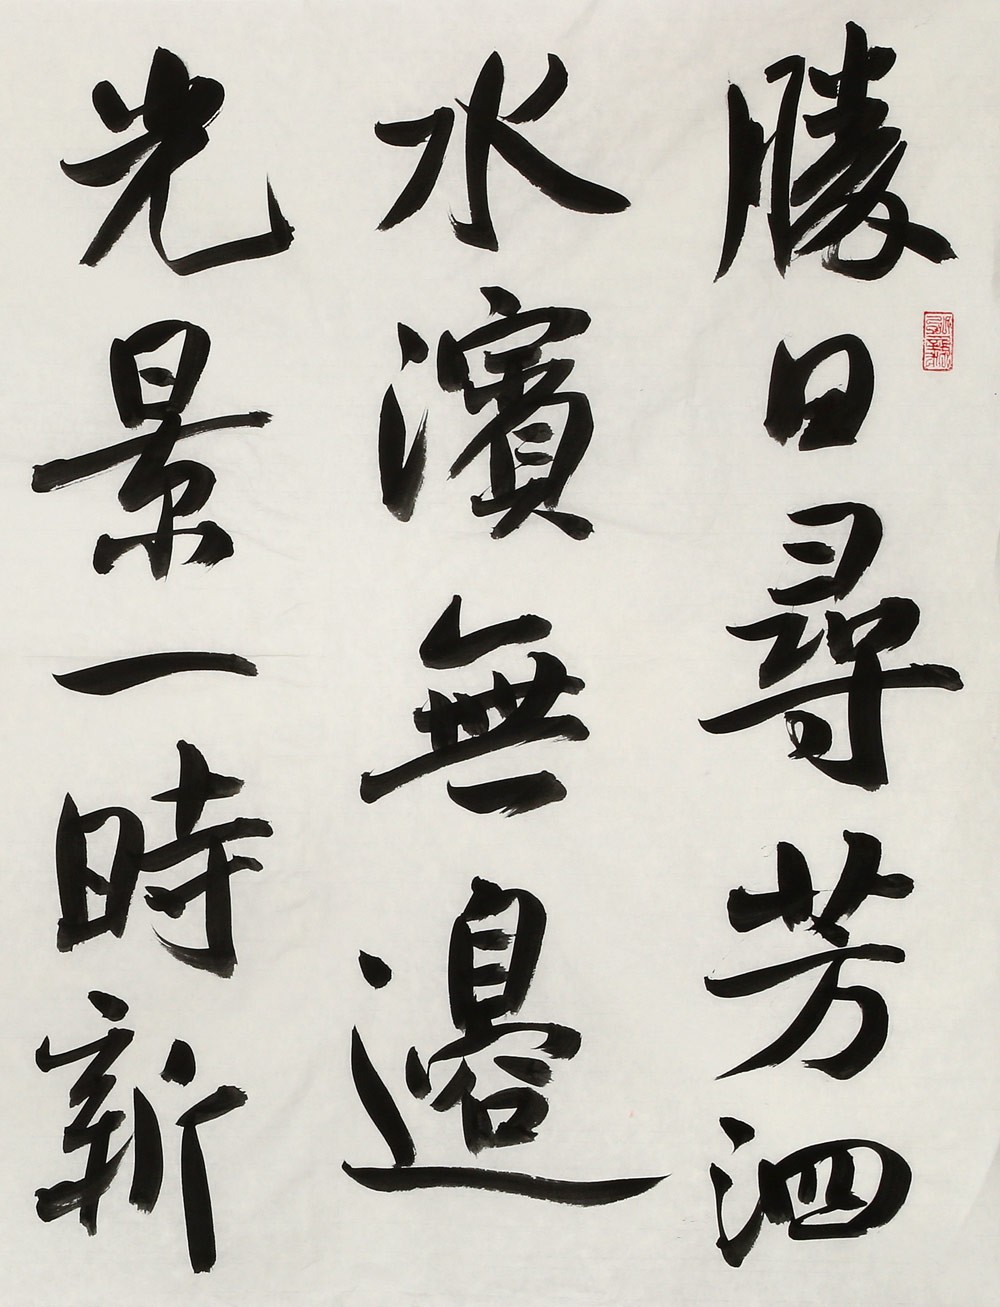 勝日尋芳泗
水濱無邊
光景一時新